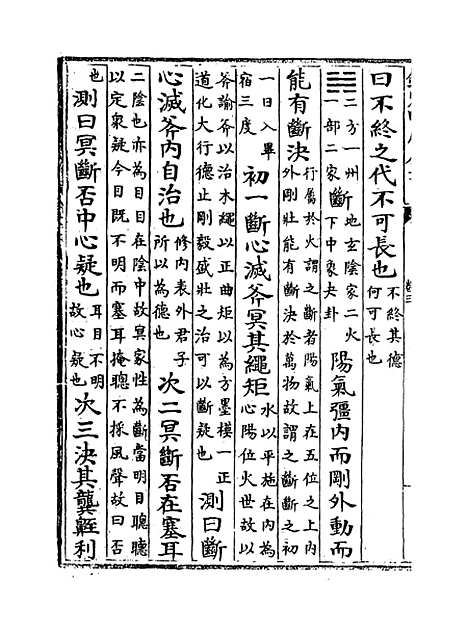 曰不終之代不可長也不終其德何可長也
二方一州一部二家斷地玄陰家二火下中象夬卦陽氣彊内而剛外動而
能有斷決行屬於火謂之斷者陽氣上在五位之上内外剛壯能有斷決於萬物故謂之斷斷之初
一日入畢宿三度初一斷心滅斧冥其繩矩水以平施在内為心陽位火世故以
斧諭斧以治木繩以正曲矩以為方墨模一正道化大行德止剛毅盛壯之治可以斷疑也測曰斷
心滅斧内自治也修内表外君子所以為德也次二冥斷否在塞耳
二陰也亦為目目在陰中故冥家性為斷當明目聰聽以定衆疑今目既不明而塞耳掩聰不採風聲故曰否
也測曰冥斷否中心疑也耳目不明故心疑也次三決其聾利